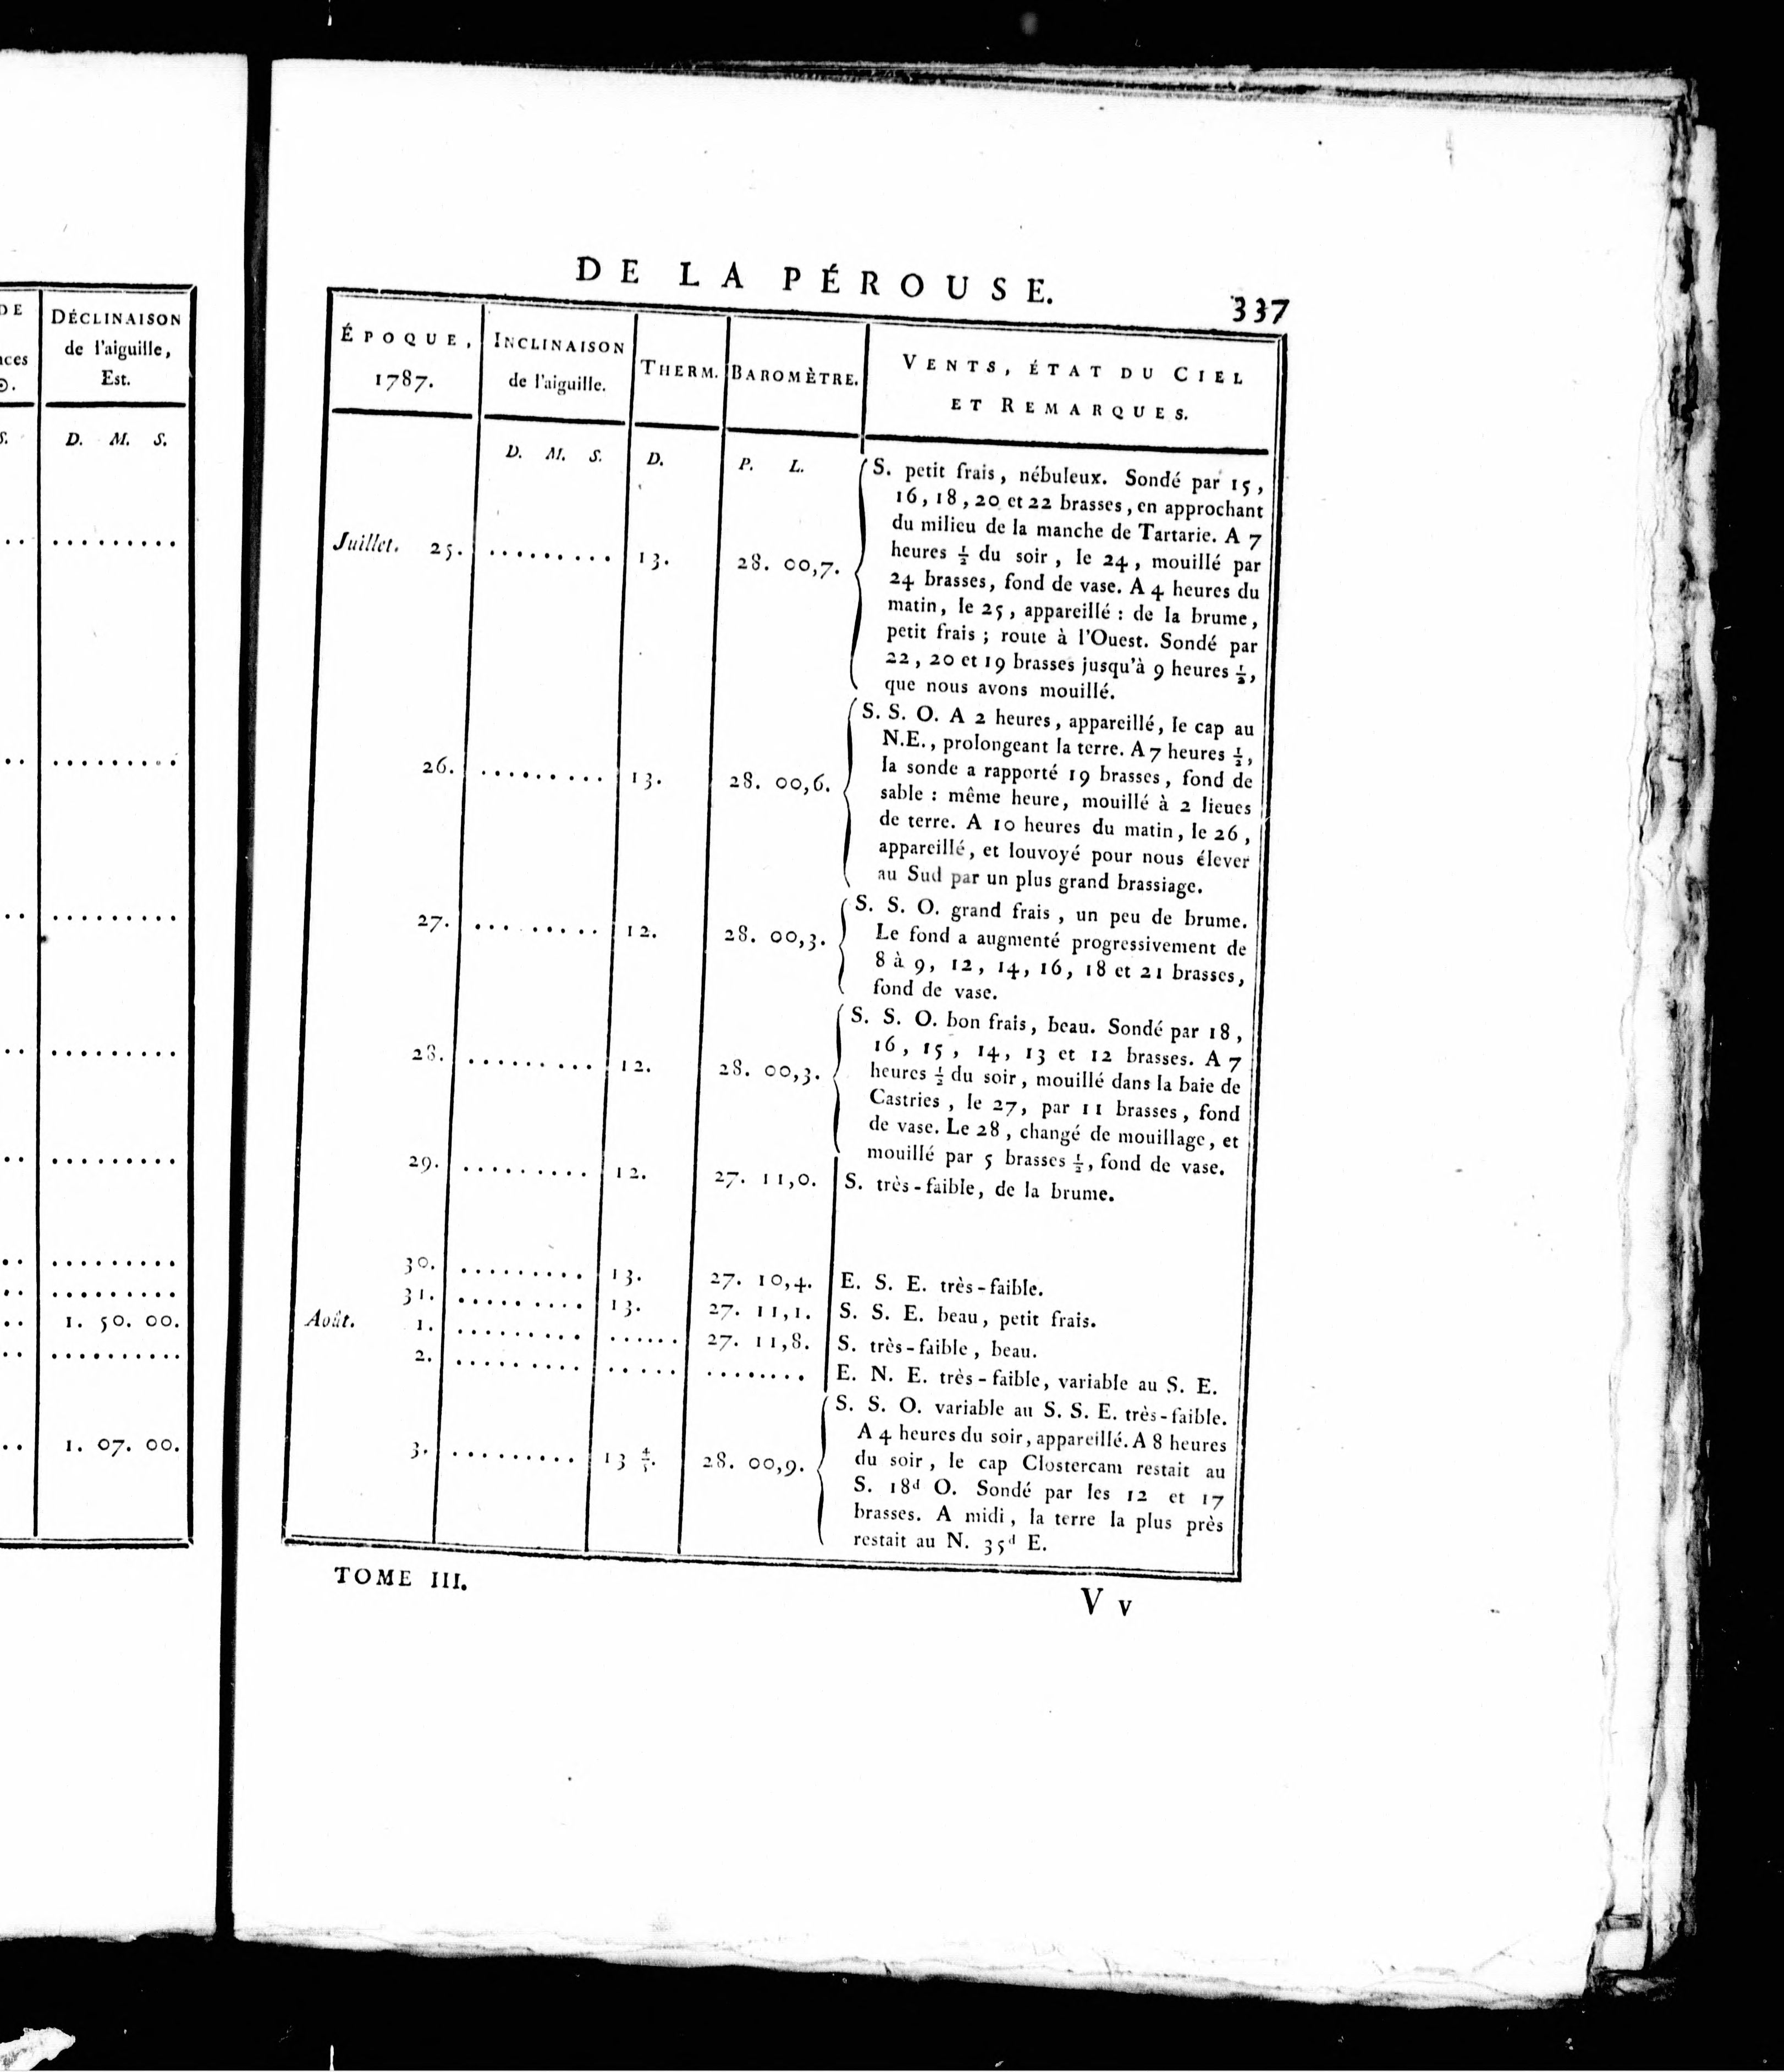 DE
nces
☉.
S.
DÉCLINAISON
de l'aiguille,
Est.
D. M. S.
.........
.........
.........
.........
.........
.........
.........
1. 50. 00.
..........
1. 07. 00.
DE LA PÉROUSE.
337
ÉPOQUE,
1787.
INCLINAISON
de l'aiguille.
THERM.
BAROMÈTRE.
VENTS, ÉTAT DU CIEL
ET REMARQUES.
D. M. S.
D.
P. L.
Juillet. 25. ......... 13. 28. 00,7.
S. petit frais, nébuleux. Sondé par 15,
16, 18, 20 et 22 brasses, en approchant
du milieu de la manche de Tartarie. A 7
heures ½ du soir, le 24, mouillé par
24 brasses, fond de vase. A 4 heures du
matin, le 25, appareillé : de la brume,
petit frais ; route à l'Ouest. Sondé par
22, 20 et 19 brasses jusqu'à 9 heures ½,
que nous avons mouillé.
26. ......... 13. 28. 00,6.
S. S. O. A 2 heures, appareillé, le cap au
N.E., prolongeant la terre. A 7 heures ½,
la sonde a rapporté 19 brasses, fond de
sable : même heure, mouillé à 2 lieues
de terre. A 10 heures du matin, le 26,
appareillé, et louvoyé pour nous élever
au Sud par un plus grand brassiage.
27. ......... 12. 28. 00,3.
S. S. O. grand frais, un peu de brume.
Le fond a augmenté progressivement de
8 à 9, 12, 14, 16, 18 et 21 brasses,
fond de vase.
28. ......... 12. 28. 00,3.
S. S. O. bon frais, beau. Sondé par 18,
16, 15, 14, 13 et 12 brasses. A 7
heures ½ du soir, mouillé dans la baie de
Castries, le 27, par 11 brasses, fond
de vase. Le 28, changé de mouillage, et
mouillé par 5 brasses ½, fond de vase.
29. ......... 12. 27. 11,0. S. très-faible, de la brume.
30. ......... 13. 27. 10,4. E. S. E. très-faible.
31. ......... 13. 27. 11,1. S. S. E. beau, petit frais.
Août. 1. ......... ...... 27. 11,8. S. très-faible, beau.
2. ......... ..... ........ E. N. E. très-faible, variable au S. E.
3. ......... 13 ⅘. 28. 00,9.
S. S. O. variable au S. S. E. très-faible.
A 4 heures du soir, appareillé. A 8 heures
du soir, le cap Clostercam restait au
S. 18ᵈ O. Sondé par les 12 et 17
brasses. A midi, la terre la plus près
restait au N. 35ᵈ E.
TOME III.
V v